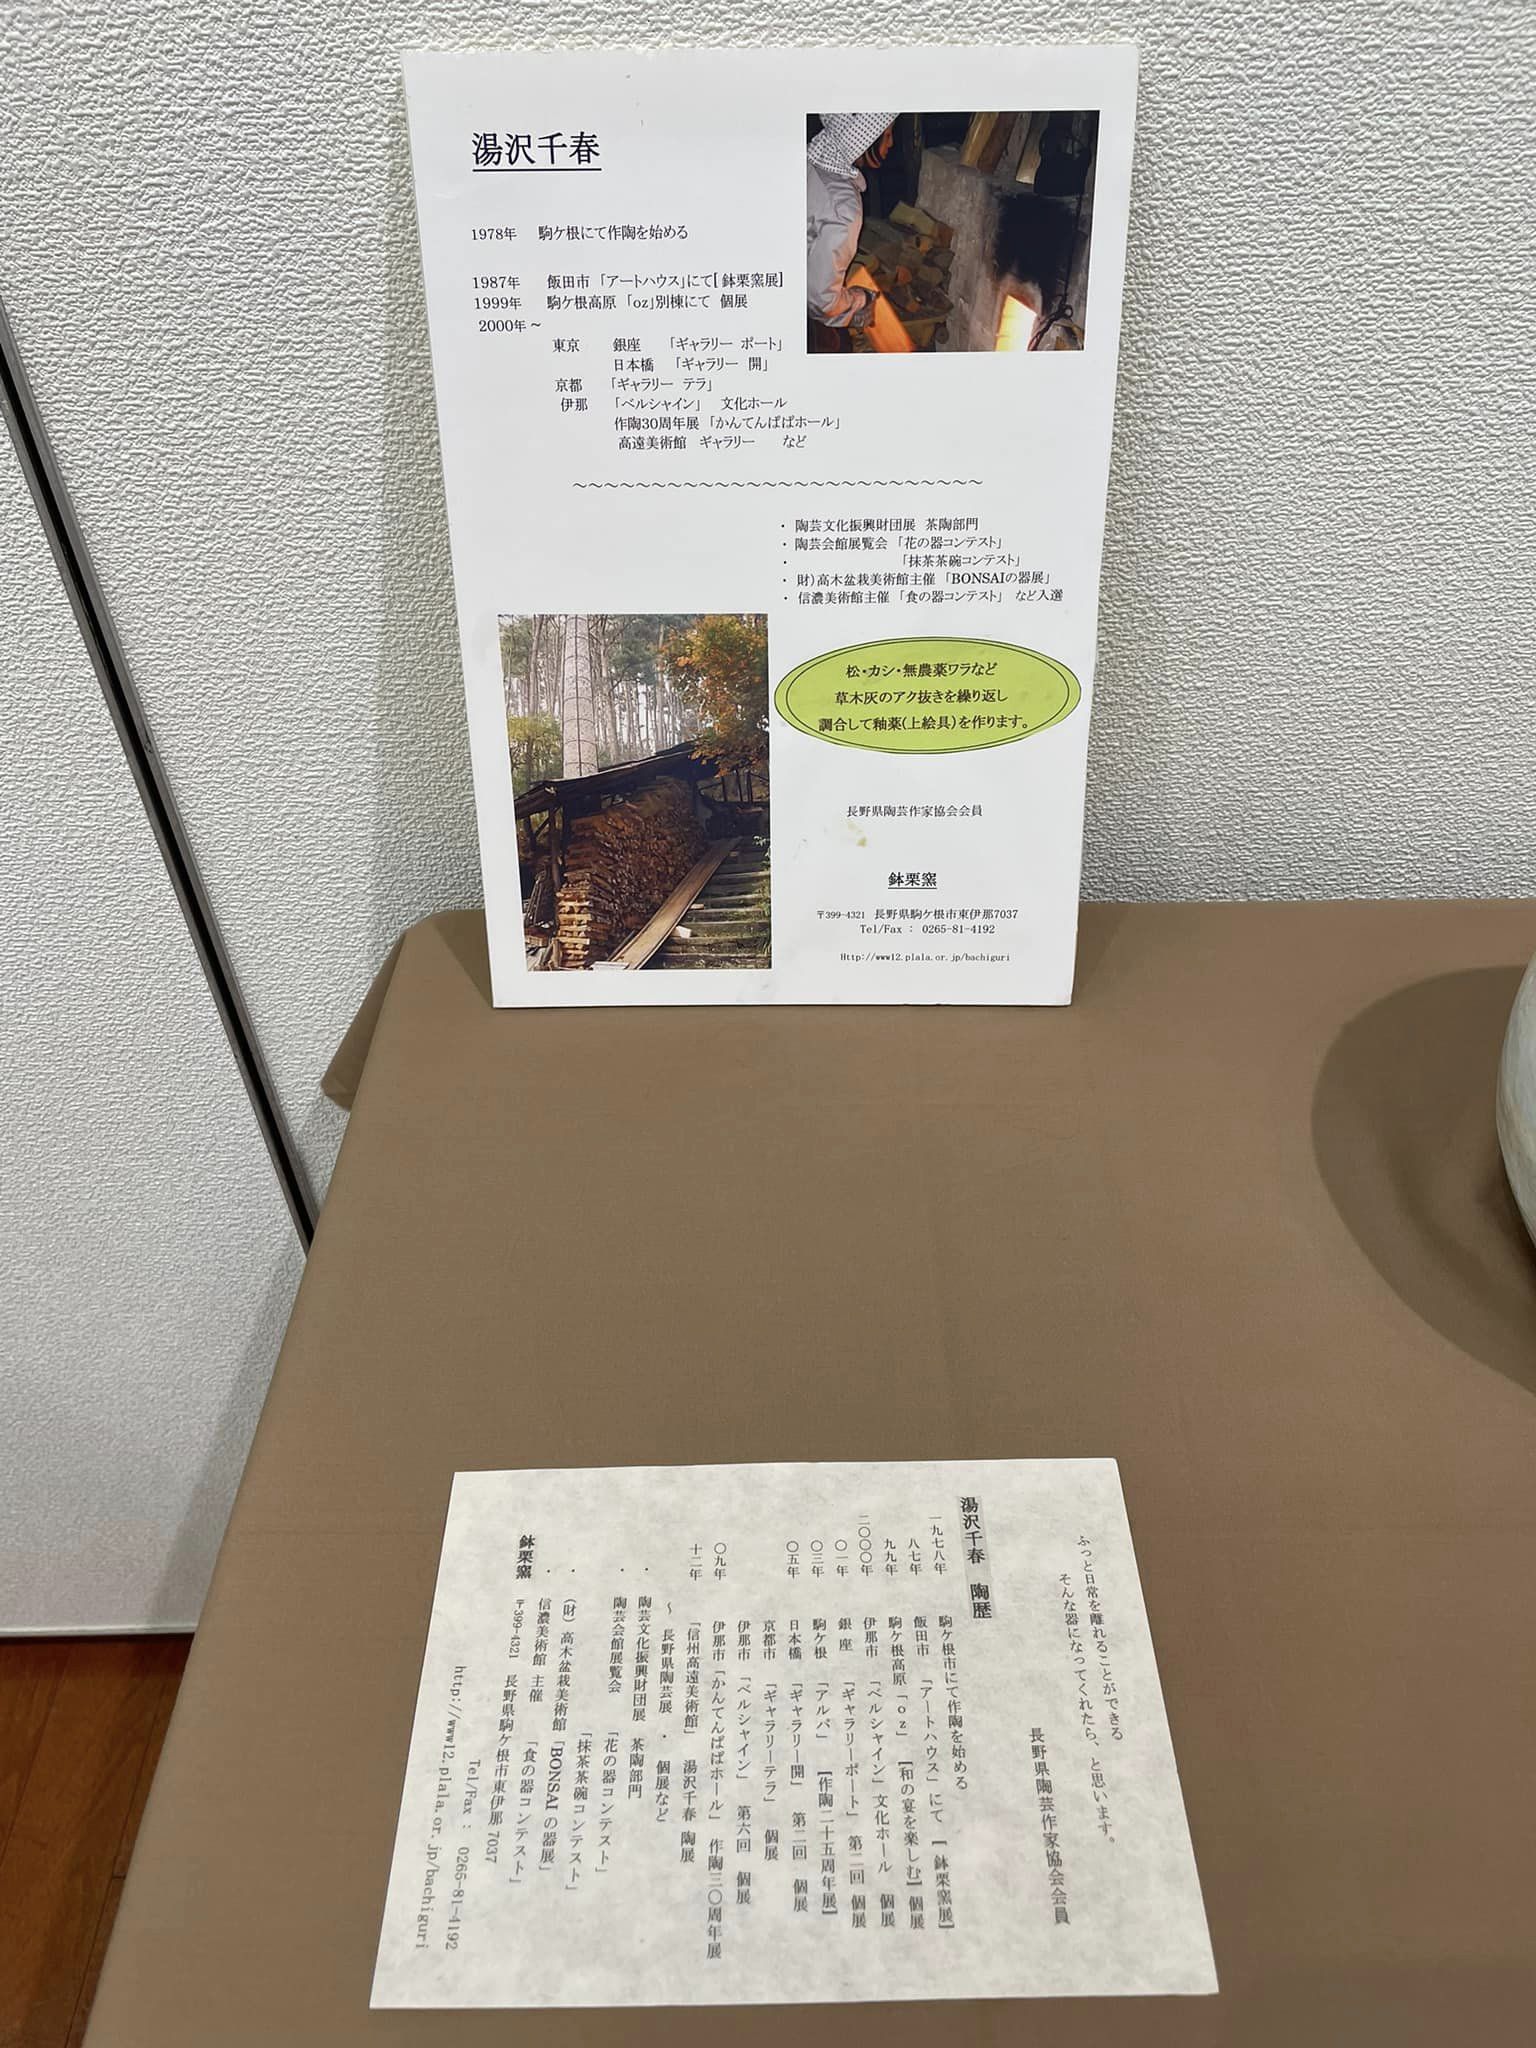 湯沢千春
1978年 駒ケ根にて作陶を始める
1987年 飯田市 「アートハウス」にて[鉢栗窯展]
1999年 駒ケ根高原 「oz」別棟にて 個展
2000年～
東京 銀座 「ギャラリー ポート」
日本橋 「ギャラリー 開」
京都 「ギャラリー テラ」
伊那 「ベルシャイン」 文化ホール
作陶30周年展 「かんてんぱぱホール」
高遠美術館 ギャラリー など
～～～～～～～～～～～～～～～～～～～～～～～～～～
・ 陶芸文化振興財団展 茶陶部門
・ 陶芸会館展覧会 「花の器コンテスト」
・ 「抹茶茶碗コンテスト」
・ 財）高木盆栽美術館主催 「BONSAIの器展」
・ 信濃美術館主催 「食の器コンテスト」 など入選
松・カシ・無農薬ワラなど
草木灰のアク抜きを繰り返し
調合して釉薬（上絵具）を作ります。
長野県陶芸作家協会会員
鉢栗窯
〒399-4321 長野県駒ケ根市東伊那7037
Tel/Fax : 0265-81-4192
Http://www12.plala.or.jp/bachiguri
ふっと日常を離れることができる
そんな器になってくれたら、と思います。
長野県陶芸作家協会会員
湯沢千春 陶歴
一九七八年 駒ケ根市にて作陶を始める
八七年 飯田市 「アートハウス」にて 【鉢栗窯展】
九九年 駒ケ根高原「oz」 【和の宴を楽しむ】個展
二〇〇〇年 伊那市 「ベルシャイン」文化ホール 個展
〇一年 銀座 「ギャラリーポート」 第二回 個展
〇三年 駒ケ根 「アルパ」 【作陶二十五周年展】
〇五年 日本橋 「ギャラリー開」 第二回 個展
京都市 「ギャラリーテラ」 個展
伊那市 「ベルシャイン」 第六回 個展
〇九年 伊那市「かんてんぱぱホール」 作陶三〇周年展
十二年 「信州高遠美術館」 湯沢千春 陶展
～ 長野県陶芸展 ・ 個展など
・ 陶芸文化振興財団展 茶陶部門
・ 陶芸会館展覧会 「花の器コンテスト」
「抹茶茶碗コンテスト」
・ （財）高木盆栽美術館「BONSAI の器展」
・ 信濃美術館 主催 「食の器コンテスト」
鉢栗窯 〒399-4321 長野県駒ケ根市東伊那 7037
Tel/Fax : 0265-81-4192
http://www12.plala.or.jp/bachiguri